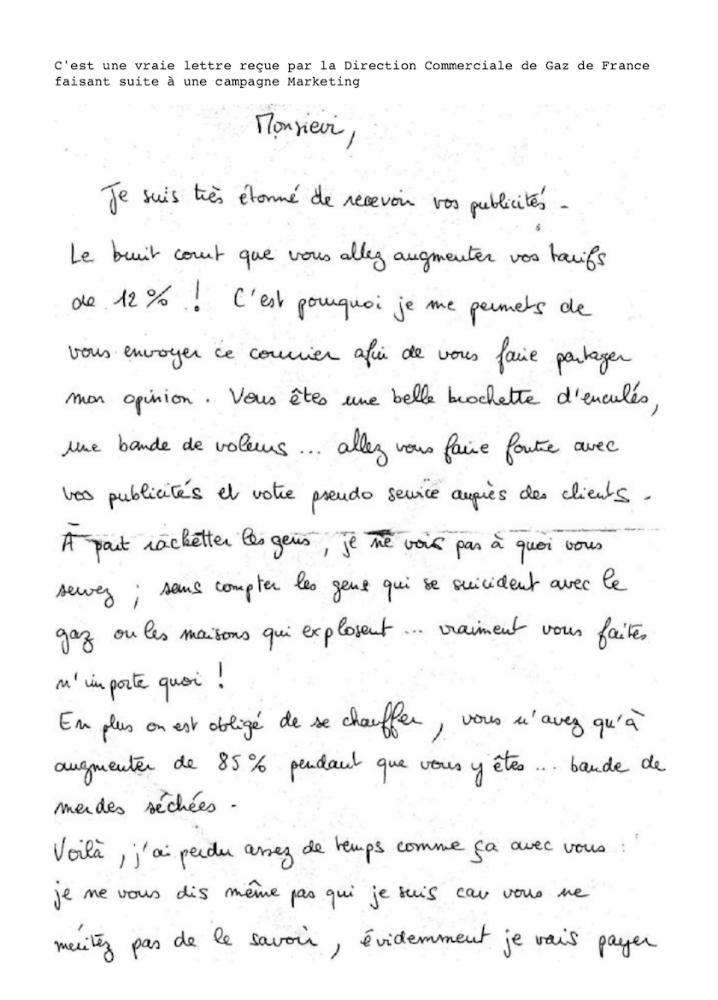 C'est une vraie lettre reçue par la Direction Commerciale de Gaz de France
faisant suite à une campagne Marketing
Monsieur,
Je suis très étonné de recevoir vos publicités.
Le bruit court que vous allez augmenter vos tarifs
de 12% ! C'est pourquoi je me permets de
vous envoyer ce courrier afin de vous faire partager
mon opinion. Vous êtes une belle brochette d'enculés,
une bande de voleurs ... allez vous faire foutre avec
vos publicités et votre pseudo service auprès des clients.
À part racketter les gens, je ne vois pas à quoi vous
servez ; sans compter les gens qui se suicident avec le
gaz ou les maisons qui explosent ... vraiment vous faites
n'importe quoi !
En plus on est obligé de se chauffer, vous n'avez qu'à
augmenter de 85% pendant que vous y êtes ... bande de
merdes séchées.
Voilà, j'ai perdu assez de temps comme ça avec vous :
je ne vous dis même pas qui je suis car vous ne
méritez pas de le savoir, évidemment je vais payer